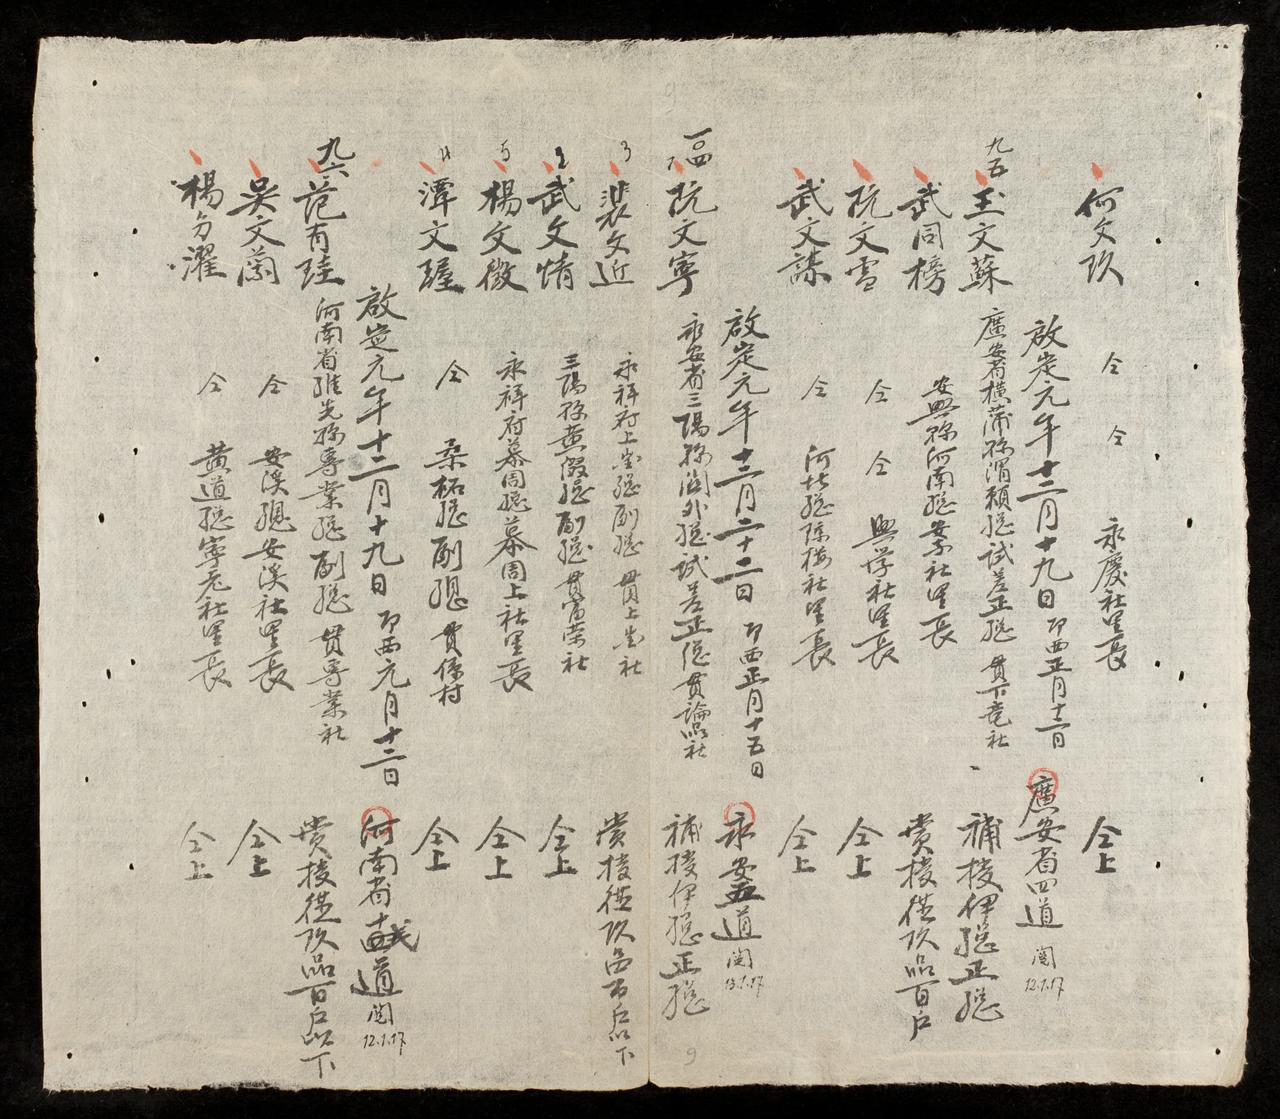 何文玖 仝 仝 永慶社里長 仝上
啟定元年十二月十九日 印西正月十二日 廣安省四道 閲 12.1.17
九五 王文蘇 廣安省橫蒲縣渭賴總試差正總 貫下竜社 補授伊總正總
武同榜 安興縣河南總安東社里長 賞授從玖品百户
阮文雪 仝 仝 興學社里長 仝上
武文謀 仝 河北總 社里長 仝上
啟定元年十二月二十二日 印西正月十五日 永安五道 閲 13.1.17
阮文寧 永安省三陽縣關外總試差正總 貫論品社 補授伊總正總
3 裴文近 永祥府上 總副總 貫上 社 賞授從玖品百户以下
2 武文情 三陽縣黄 總副總 貫富荣社 仝上
5 楊文徵 永祥府慕周總慕周上社里長 仝上
4 潭文瑆 仝 桑柘總副總 貫 村 仝上
啟定元年十二月十九日 印西元月十二日 河南省 道 閲 12.1.17
九六 范有珪 河南省維先縣專業總副總 貫專業社 賞授從玖品百户以下
吳文蘭 仝 安溪總安溪社里長 仝上
楊 濯 仝 黄道總寧老社里長 仝上
9